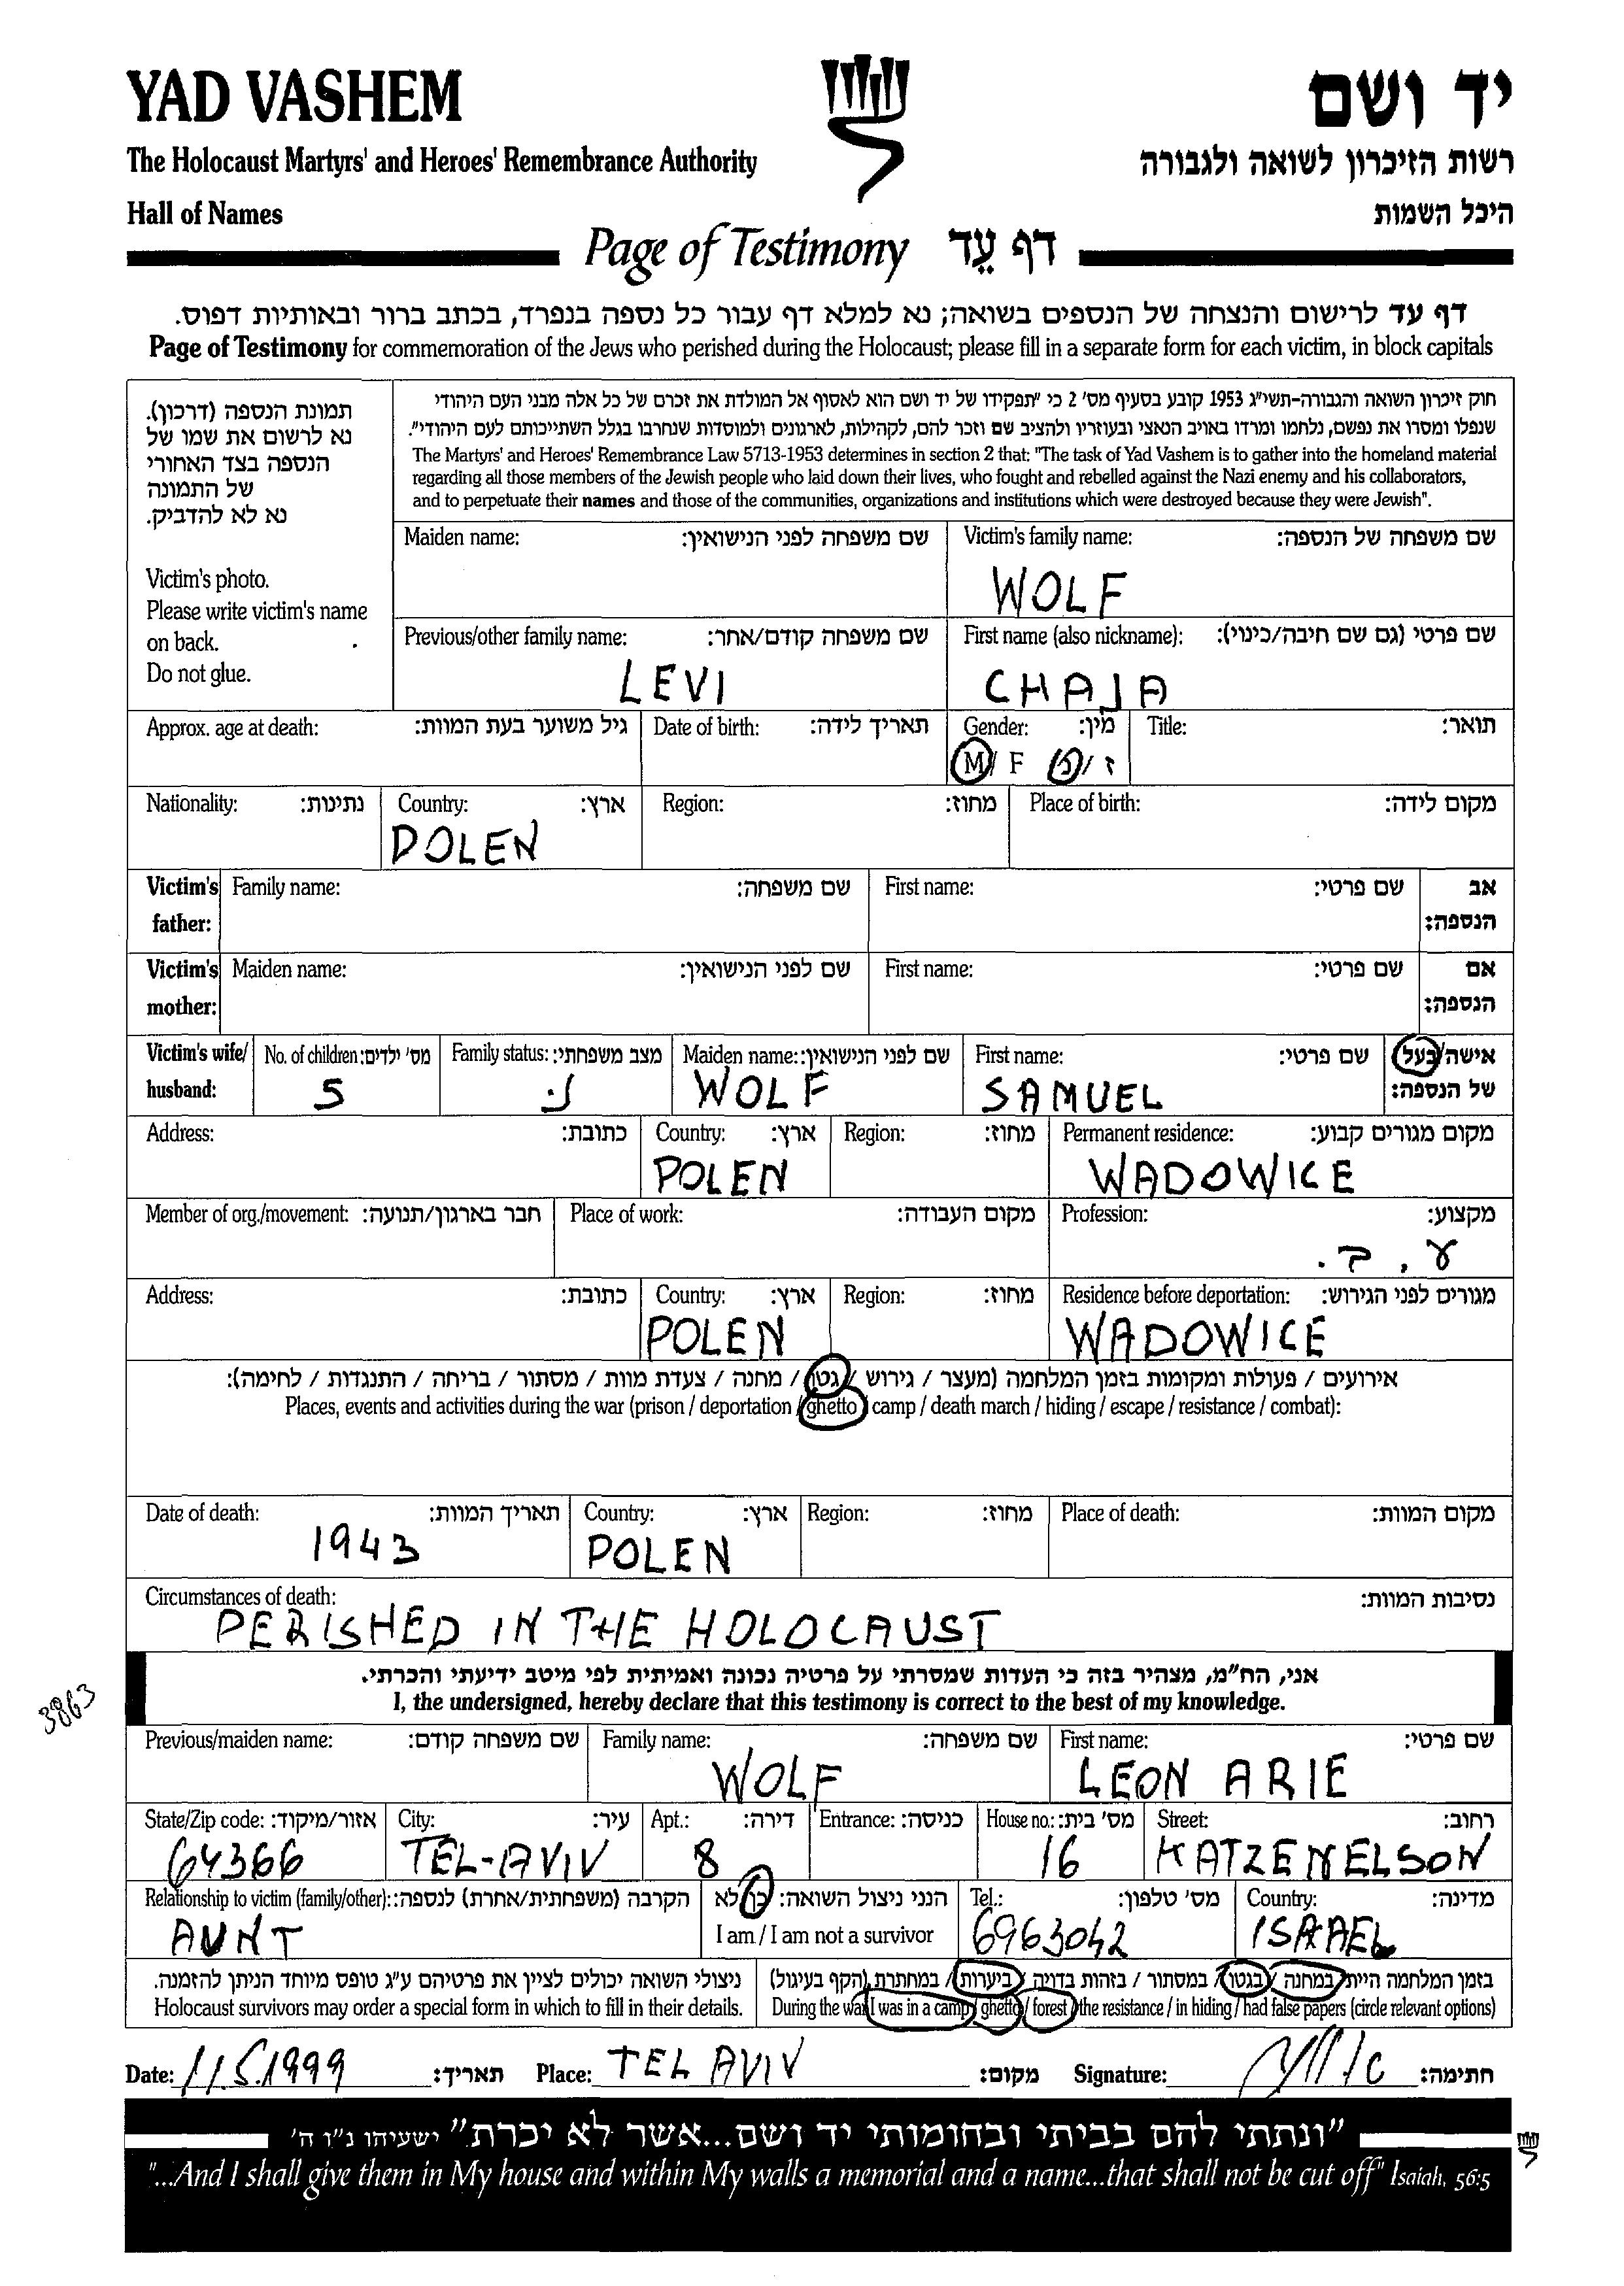 YAD VASHEM
יד ושם
The Holocaust Martyrs' and Heroes' Remembrance Authority
רשות הזיכרון לשואה ולגבורה
Hall of Names
היכל השמות
Page of Testimony דף עֵד
דף עד לרישום והנצחה של הנספים בשואה; נא למלא דף עבור כל נספה בנפרד, בכתב ברור ובאותיות דפוס.
Page of Testimony for commemoration of the Jews who perished during the Holocaust; please fill in a separate form for each victim, in block capitals
תמונת הנספה (דרכון).
נא לרשום את שמו של
הנספה בצד האחורי
של התמונה
נא לא להדביק.
Victim's photo.
Please write victim's name
on back.
Do not glue.
חוק זיכרון השואה והגבורה-תשי"ג 1953 קובע בסעיף מס' 2 כי "תפקידו של יד ושם הוא לאסוף אל המולדת את זכרם של כל אלה מבני העם היהודי
שנפלו ומסרו את נפשם, נלחמו ומרדו באויב הנאצי ובעוזריו ולהציב שם וזכר להם, לקהילות, לארגונים ולמוסדות שנחרבו בגלל השתייכותם לעם היהודי".
The Martyrs' and Heroes' Remembrance Law 5713-1953 determines in section 2 that: "The task of Yad Vashem is to gather into the homeland material
regarding all those members of the Jewish people who laid down their lives, who fought and rebelled against the Nazi enemy and his collaborators,
and to perpetuate their names and those of the communities, organizations and institutions which were destroyed because they were Jewish".
Maiden name: שם משפחה לפני הנישואין: Victim's family name: שם משפחה של הנספה:
WOLF
Previous/other family name: שם משפחה קודם/אחר: First name (also nickname): שם פרטי (גם שם חיבה/כינוי):
LEVI CHAJA
Approx. age at death: גיל משוער בעת המוות: Date of birth: תאריך לידה: Gender: מין: Title: תואר:
M/ F ז/נ
Nationality: נתינות: Country: ארץ: Region: מחוז: Place of birth: מקום לידה:
POLEN
Victim's Family name: שם משפחה: First name: שם פרטי: אב
father: הנספה:
Victim's Maiden name: שם לפני הנישואין: First name: שם פרטי: אם
mother: הנספה:
Victim's wife/ No. of children: מס' ילדים: Family status: מצב משפחתי: Maiden name: שם לפני הנישואין: First name: שם פרטי: אישה/בעל
husband: 5 נ. WOLF SAMUEL של הנספה:
Address: כתובת: Country: ארץ: Region: מחוז: Permanent residence: מקום מגורים קבוע:
POLEN WADOWICE
Member of org./movement: חבר בארגון/תנועה: Place of work: מקום העבודה: Profession: מקצוע:
ע. ב.
Address: כתובת: Country: ארץ: Region: מחוז: Residence before deportation: מגורים לפני הגירוש:
POLEN WADOWICE
אירועים / פעולות ומקומות בזמן המלחמה (מעצר / גירוש / גטו / מחנה / צעדת מוות / מסתור / בריחה / התנגדות / לחימה):
Places, events and activities during the war (prison / deportation / ghetto / camp / death march / hiding / escape / resistance / combat):
Date of death: תאריך המוות: Country: ארץ: Region: מחוז: Place of death: מקום המוות:
1943 POLEN
Circumstances of death: נסיבות המוות:
PERISHED IN THE HOLOCAUST
אני, הח"מ, מצהיר בזה כי העדות שמסרתי על פרטיה נכונה ואמיתית לפי מיטב ידיעתי והכרתי.
I, the undersigned, hereby declare that this testimony is correct to the best of my knowledge.
3863
Previous/maiden name: שם משפחה קודם: Family name: שם משפחה: First name: שם פרטי:
WOLF LEON ARIE
State/Zip code: אזור/מיקוד: City: עיר: Apt.: דירה: Entrance: כניסה: House no.: מס' בית: Street: רחוב:
64366 TEL-AVIV 8 16 KATZENELSON
Relationship to victim (family/other): הקרבה (משפחתית/אחרת) לנספה: הנני ניצול השואה: כן/לא Tel.: מס' טלפון: Country: מדינה:
AUNT I am / I am not a survivor 6963042 ISRAEL
ניצולי השואה יכולים לציין את פרטיהם ע"ג טופס מיוחד הניתן להזמנה. בזמן המלחמה היית במחנה / בגטו / במסתור / בזהות בדויה / ביערות / במחתרת (הקף בעיגול)
Holocaust survivors may order a special form in which to fill in their details. During the war I was in a camp / ghetto / forest / the resistance / in hiding / had false papers (circle relevant options)
Date: 11.5.1999 תאריך: Place: TEL AVIV מקום: Signature: חתימה:
"ונתתי להם בביתי ובחומותי יד ושם...אשר לא יכרת" ישעיהו נ"ו ה'
"...And I shall give them in My house and within My walls a memorial and a name...that shall not be cut off" Isaiah, 56:5